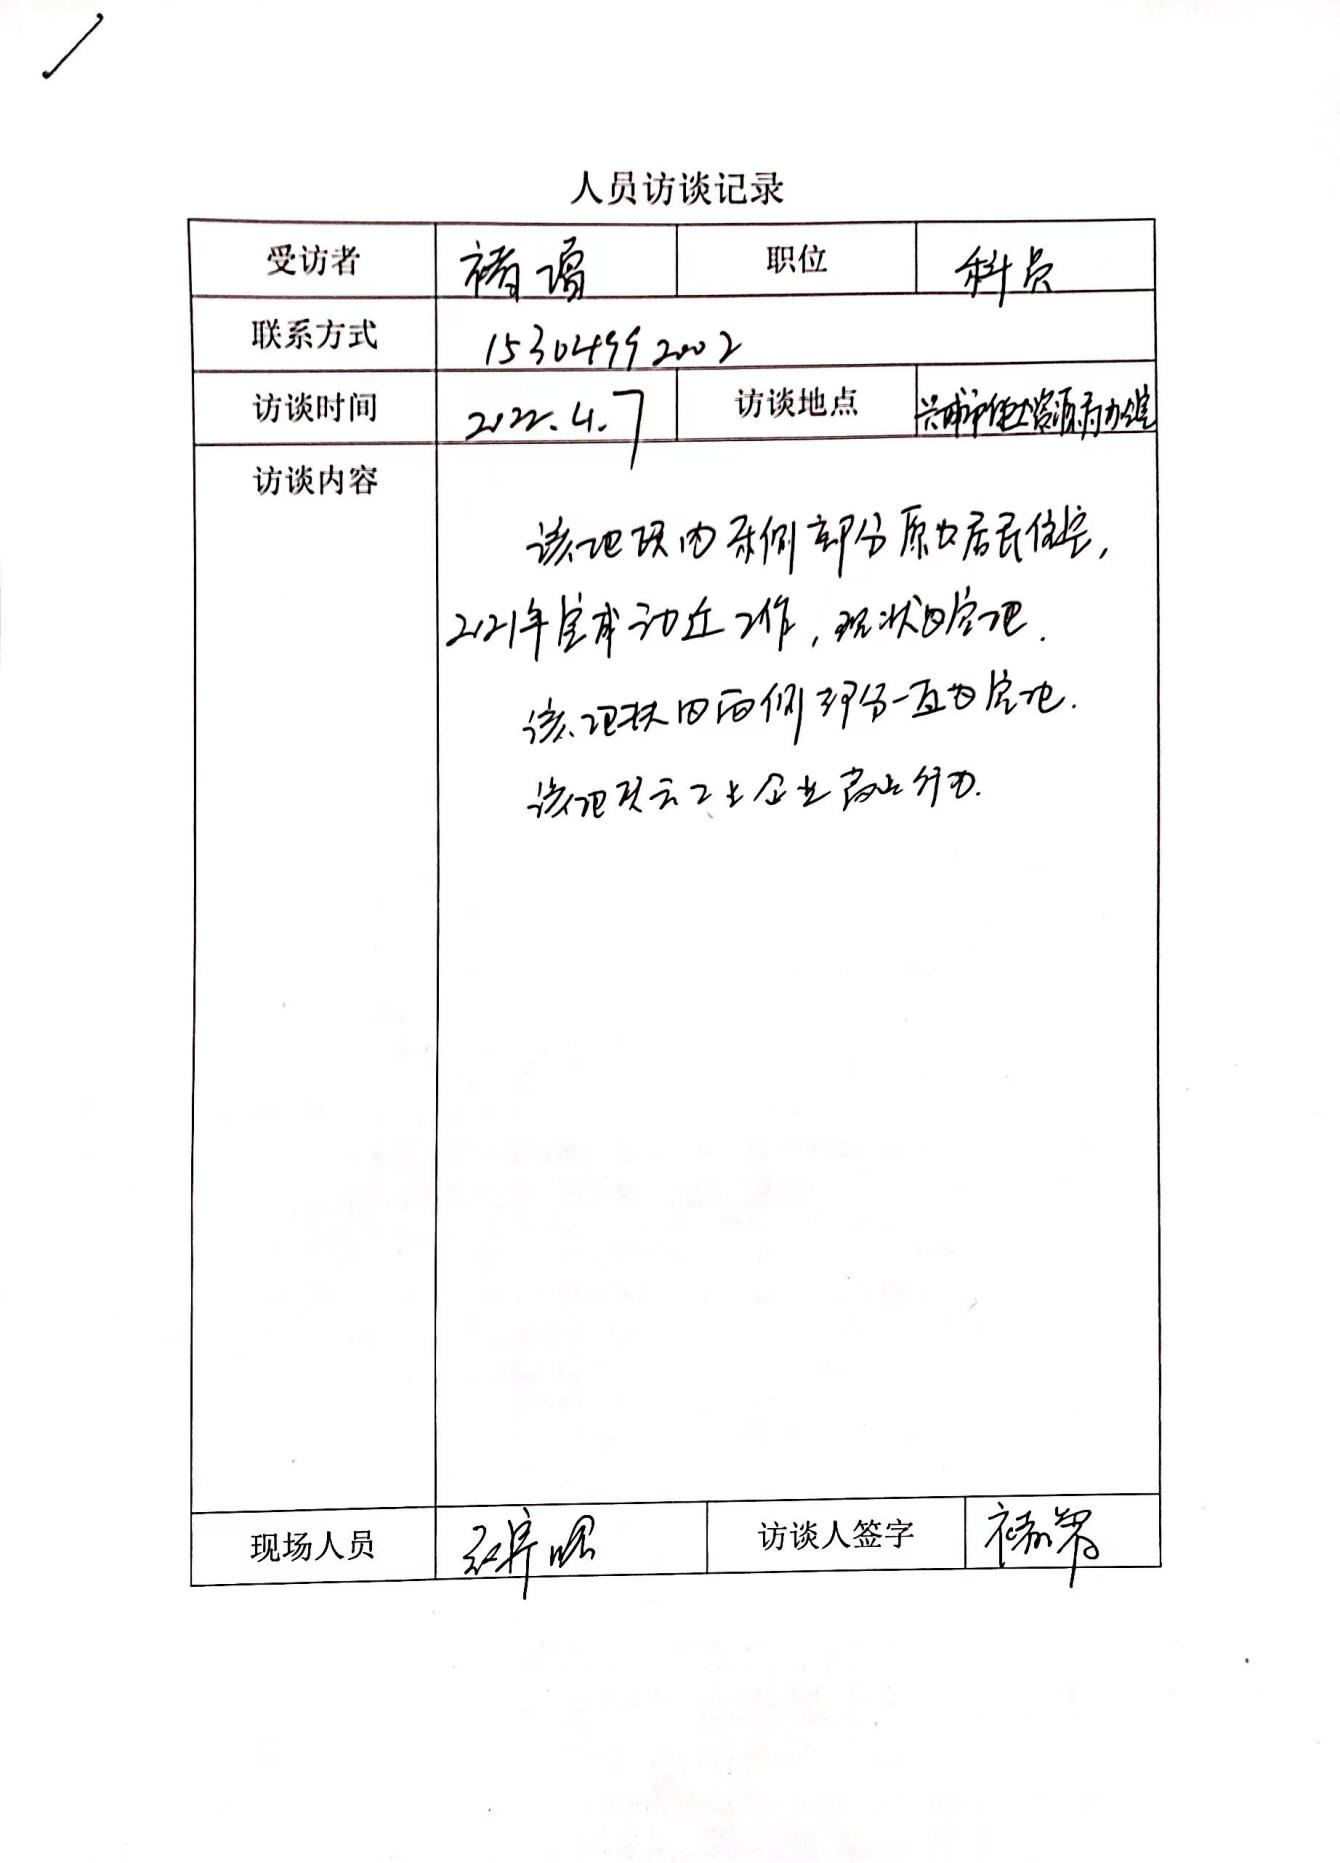 人员访谈记录
受访者 褚 职位 科员
联系方式 15304992002
访谈时间 2022.4.7 访谈地点 兴城市国土资源局办公室
访谈内容
该地块内东侧部分原为居民住宅,
2021年完成动迁工作,现状为空地.
该地块内西侧部分一直为空地.
该地块无工业企业
现场人员 访谈人签字 褚